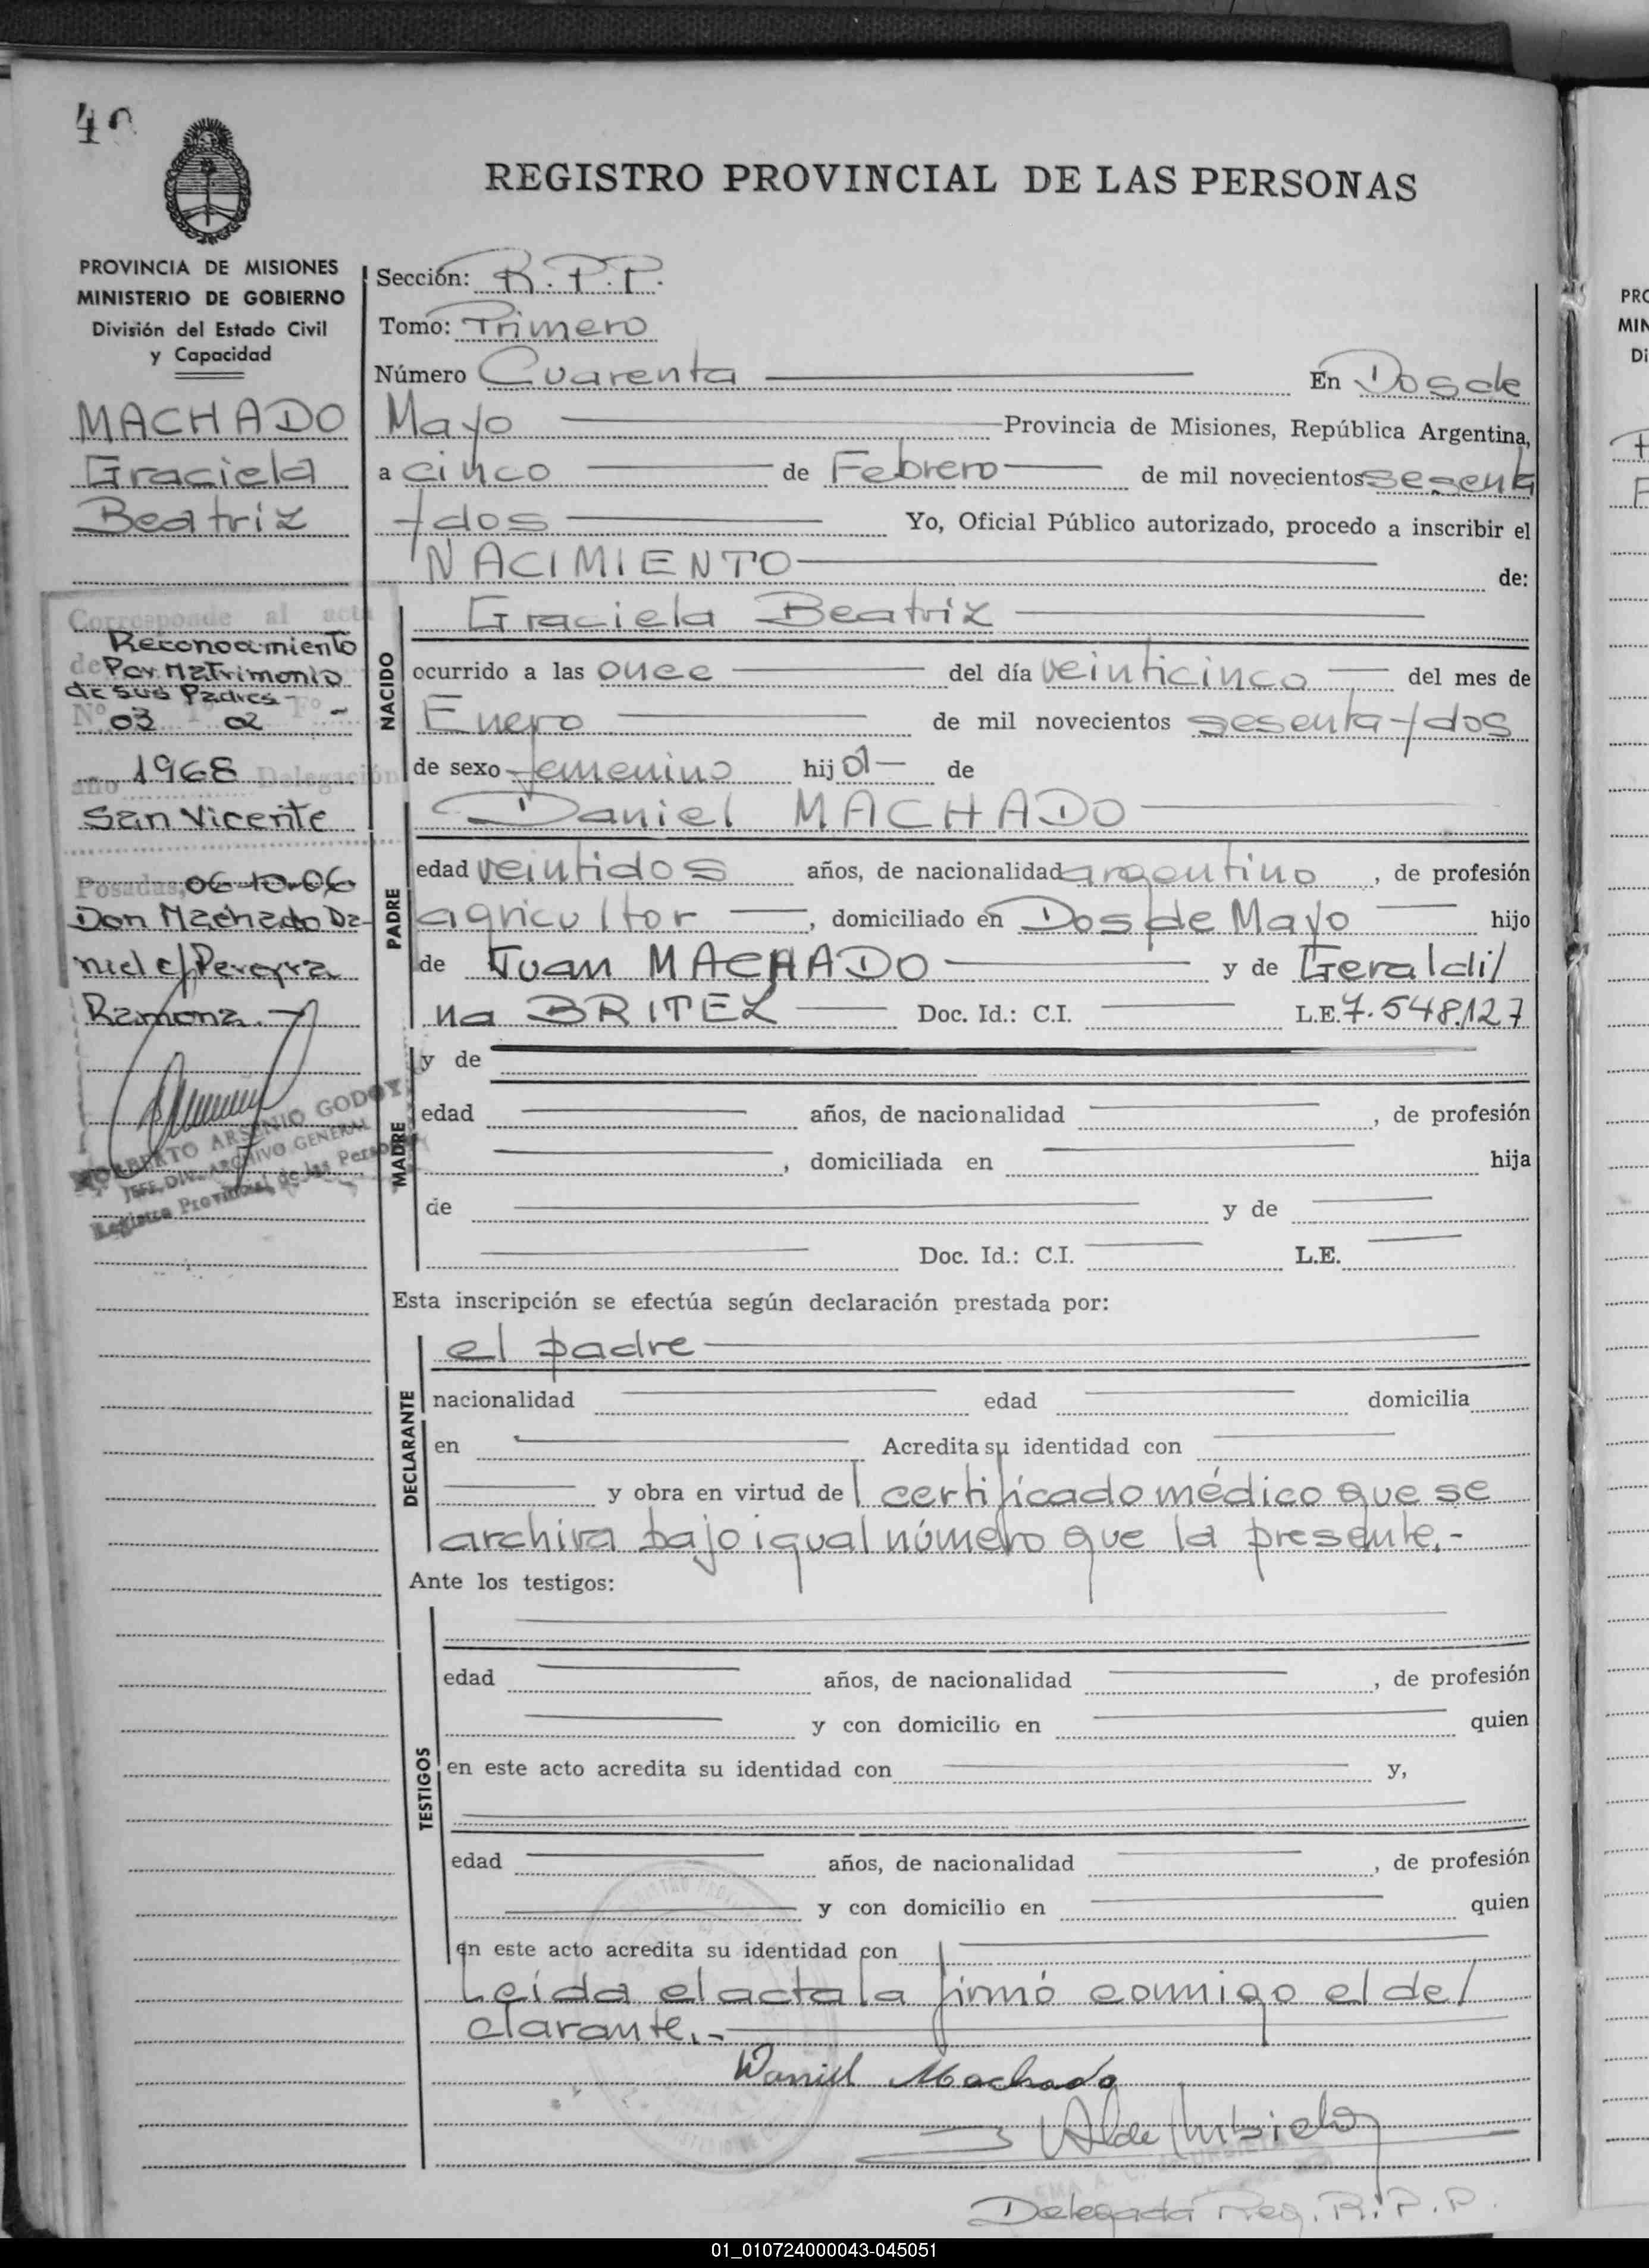 40
REGISTRO PROVINCIAL DE LAS PERSONAS
PROVINCIA DE MISIONES
MINISTERIO DE GOBIERNO
División del Estado Civil
y Capacidad
MACHADO
Graciela
Beatriz
Corresponde al acta
Reconocimiento
de Por Matrimonio
de sus Padres -
Nº 03 Tº 02 Fº -
año 1968 Delegación
San Vicente
Posadas, 06-10-06
Don Machado Da-
niel c/ Pereyra
Ramona.-
NORBERTO ARSENIO GODOY
JEFE DIV. ARCHIVO GENERAL
Registro Provincial de las Personas
Sección: R.P.P.
Tomo: Primero
Número Cuarenta En Dos de
Mayo Provincia de Misiones, República Argentina,
a cinco de Febrero de mil novecientos sesenta
y dos Yo, Oficial Público autorizado, procedo a inscribir el
NACIMIENTO de:
NACIDO
Graciela Beatriz
ocurrido a las once del día veinticinco del mes de
Enero de mil novecientos sesenta y dos
de sexo femenino hija de
PADRE
Daniel MACHADO
edad veintidos años, de nacionalidad argentino, de profesión
agricultor, domiciliado en Dos de Mayo hijo
de Juan MACHADO y de Geraldi/
na BRITEZ Doc. Id.: C.I. L.E. 7.548.127
MADRE
y de
edad años, de nacionalidad , de profesión
, domiciliada en hija
de y de
Doc. Id.: C.I. L.E.
Esta inscripción se efectúa según declaración prestada por:
DECLARANTE
el padre
nacionalidad edad domicilia
en Acredita su identidad con
y obra en virtud del certificado médico que se
archiva bajo igual número que la presente.-
Ante los testigos:
TESTIGOS
edad años, de nacionalidad , de profesión
y con domicilio en quien
en este acto acredita su identidad con y,
edad años, de nacionalidad , de profesión
y con domicilio en quien
en este acto acredita su identidad con
Leída el acta la firmó conmigo el de/
clarante.-
Daniel Machado
Delegada Reg. R.P.P.
PRO
MIN
Di
01_010724000043-045051